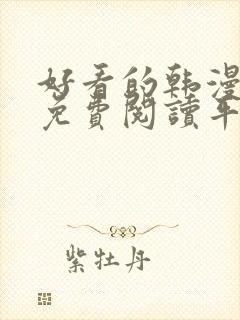 好看的韩漫
免費閱讀平
紫牡丹